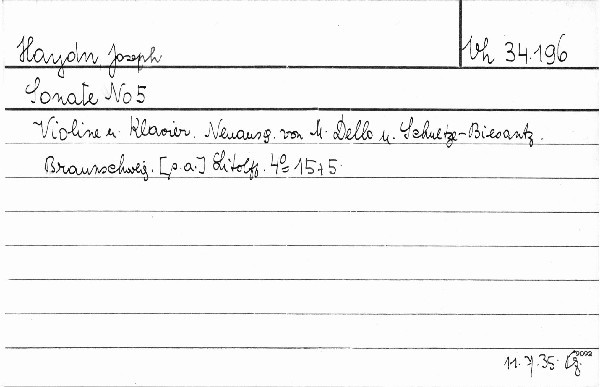 Haydn, Joseph
Vh 34.196
Sonate No 5
Violine u. Klavier. Neuausg. von M. Dello u. Schultze-Biesantz.
Braunschweig. [s.a.] Litolff. 4° = 15+5.
11. 7. 35.
9092